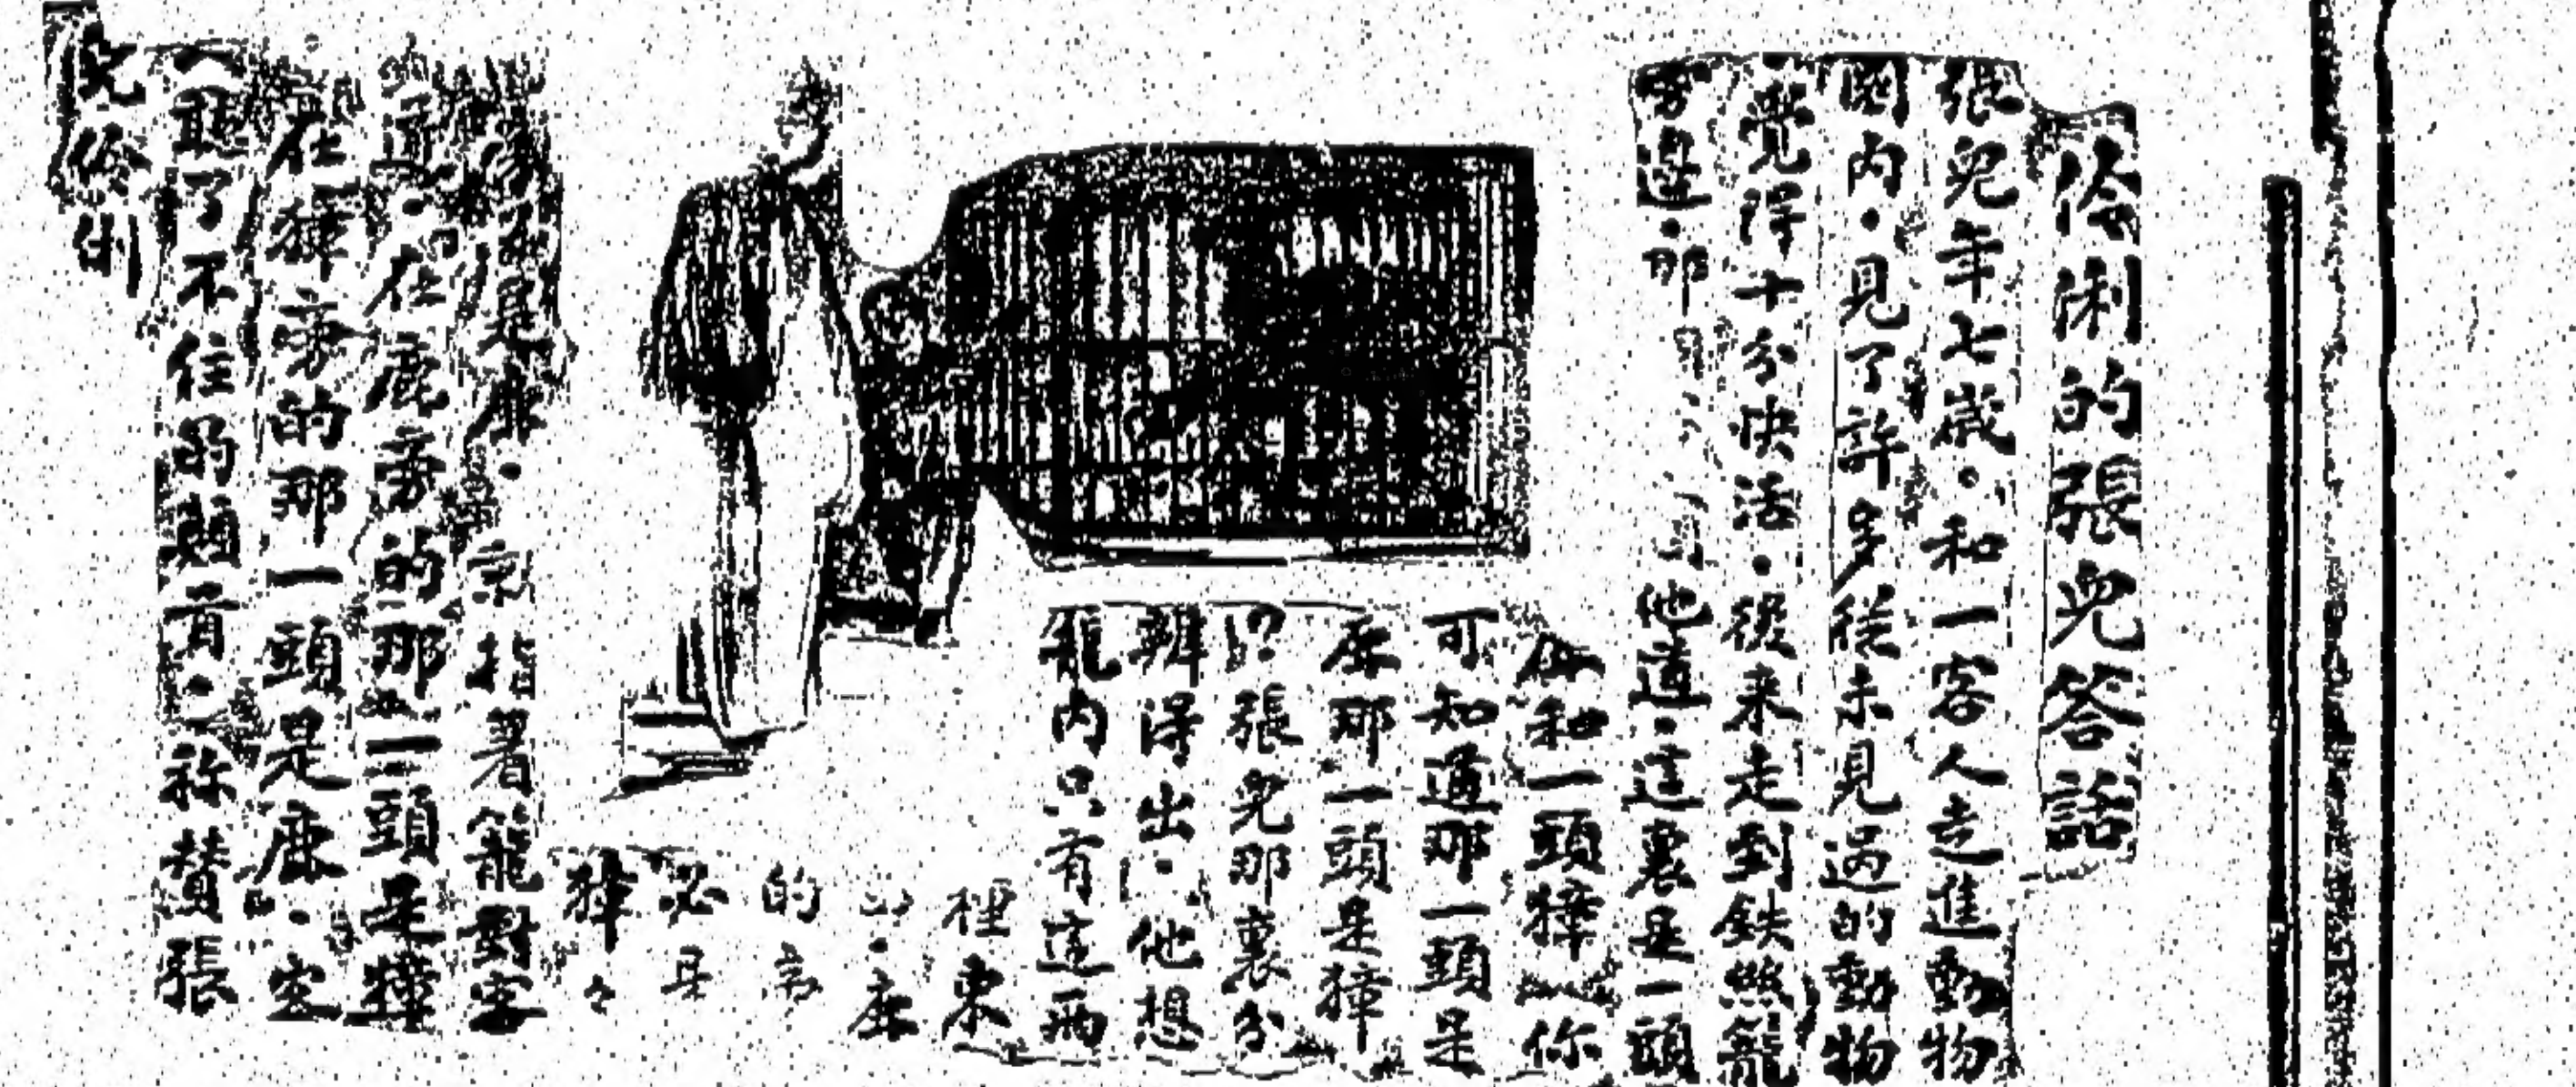 伶俐的張兒答話
張兒年七歲·和一客人走進動物
園內·見了許多從未見過的動物
覺得十分快活·後来走到鉄絲籠
旁邊·那 他道·這裏是一頭
鹿和一頭獐 你
可知道那一頭是
鹿那一頭是獐
張兒那裏分
辨得出·他想
籠内只有這兩
裡東
鹿
的旁
必是
獐
是鹿·就指着籠對客
道·在鹿旁的那一頭是獐
在獐旁的那一頭是鹿 客
人聽了不住的點首 称贊張
兒伶俐